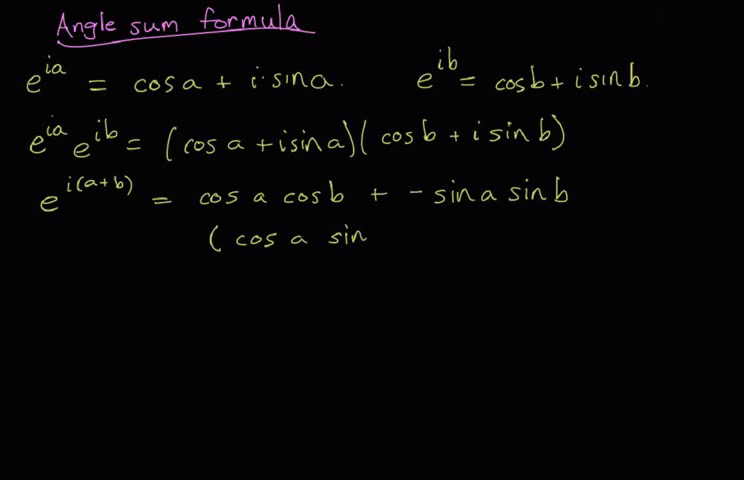 Angle sum formula
e^{ia} = cos a + i·sin a.    e^{ib} = cos b + i sin b.
e^{ia} e^{ib} = (cos a + i sin a)(cos b + i sin b)
e^{i(a+b)} = cos a cos b + - sin a sin b
(cos a sin